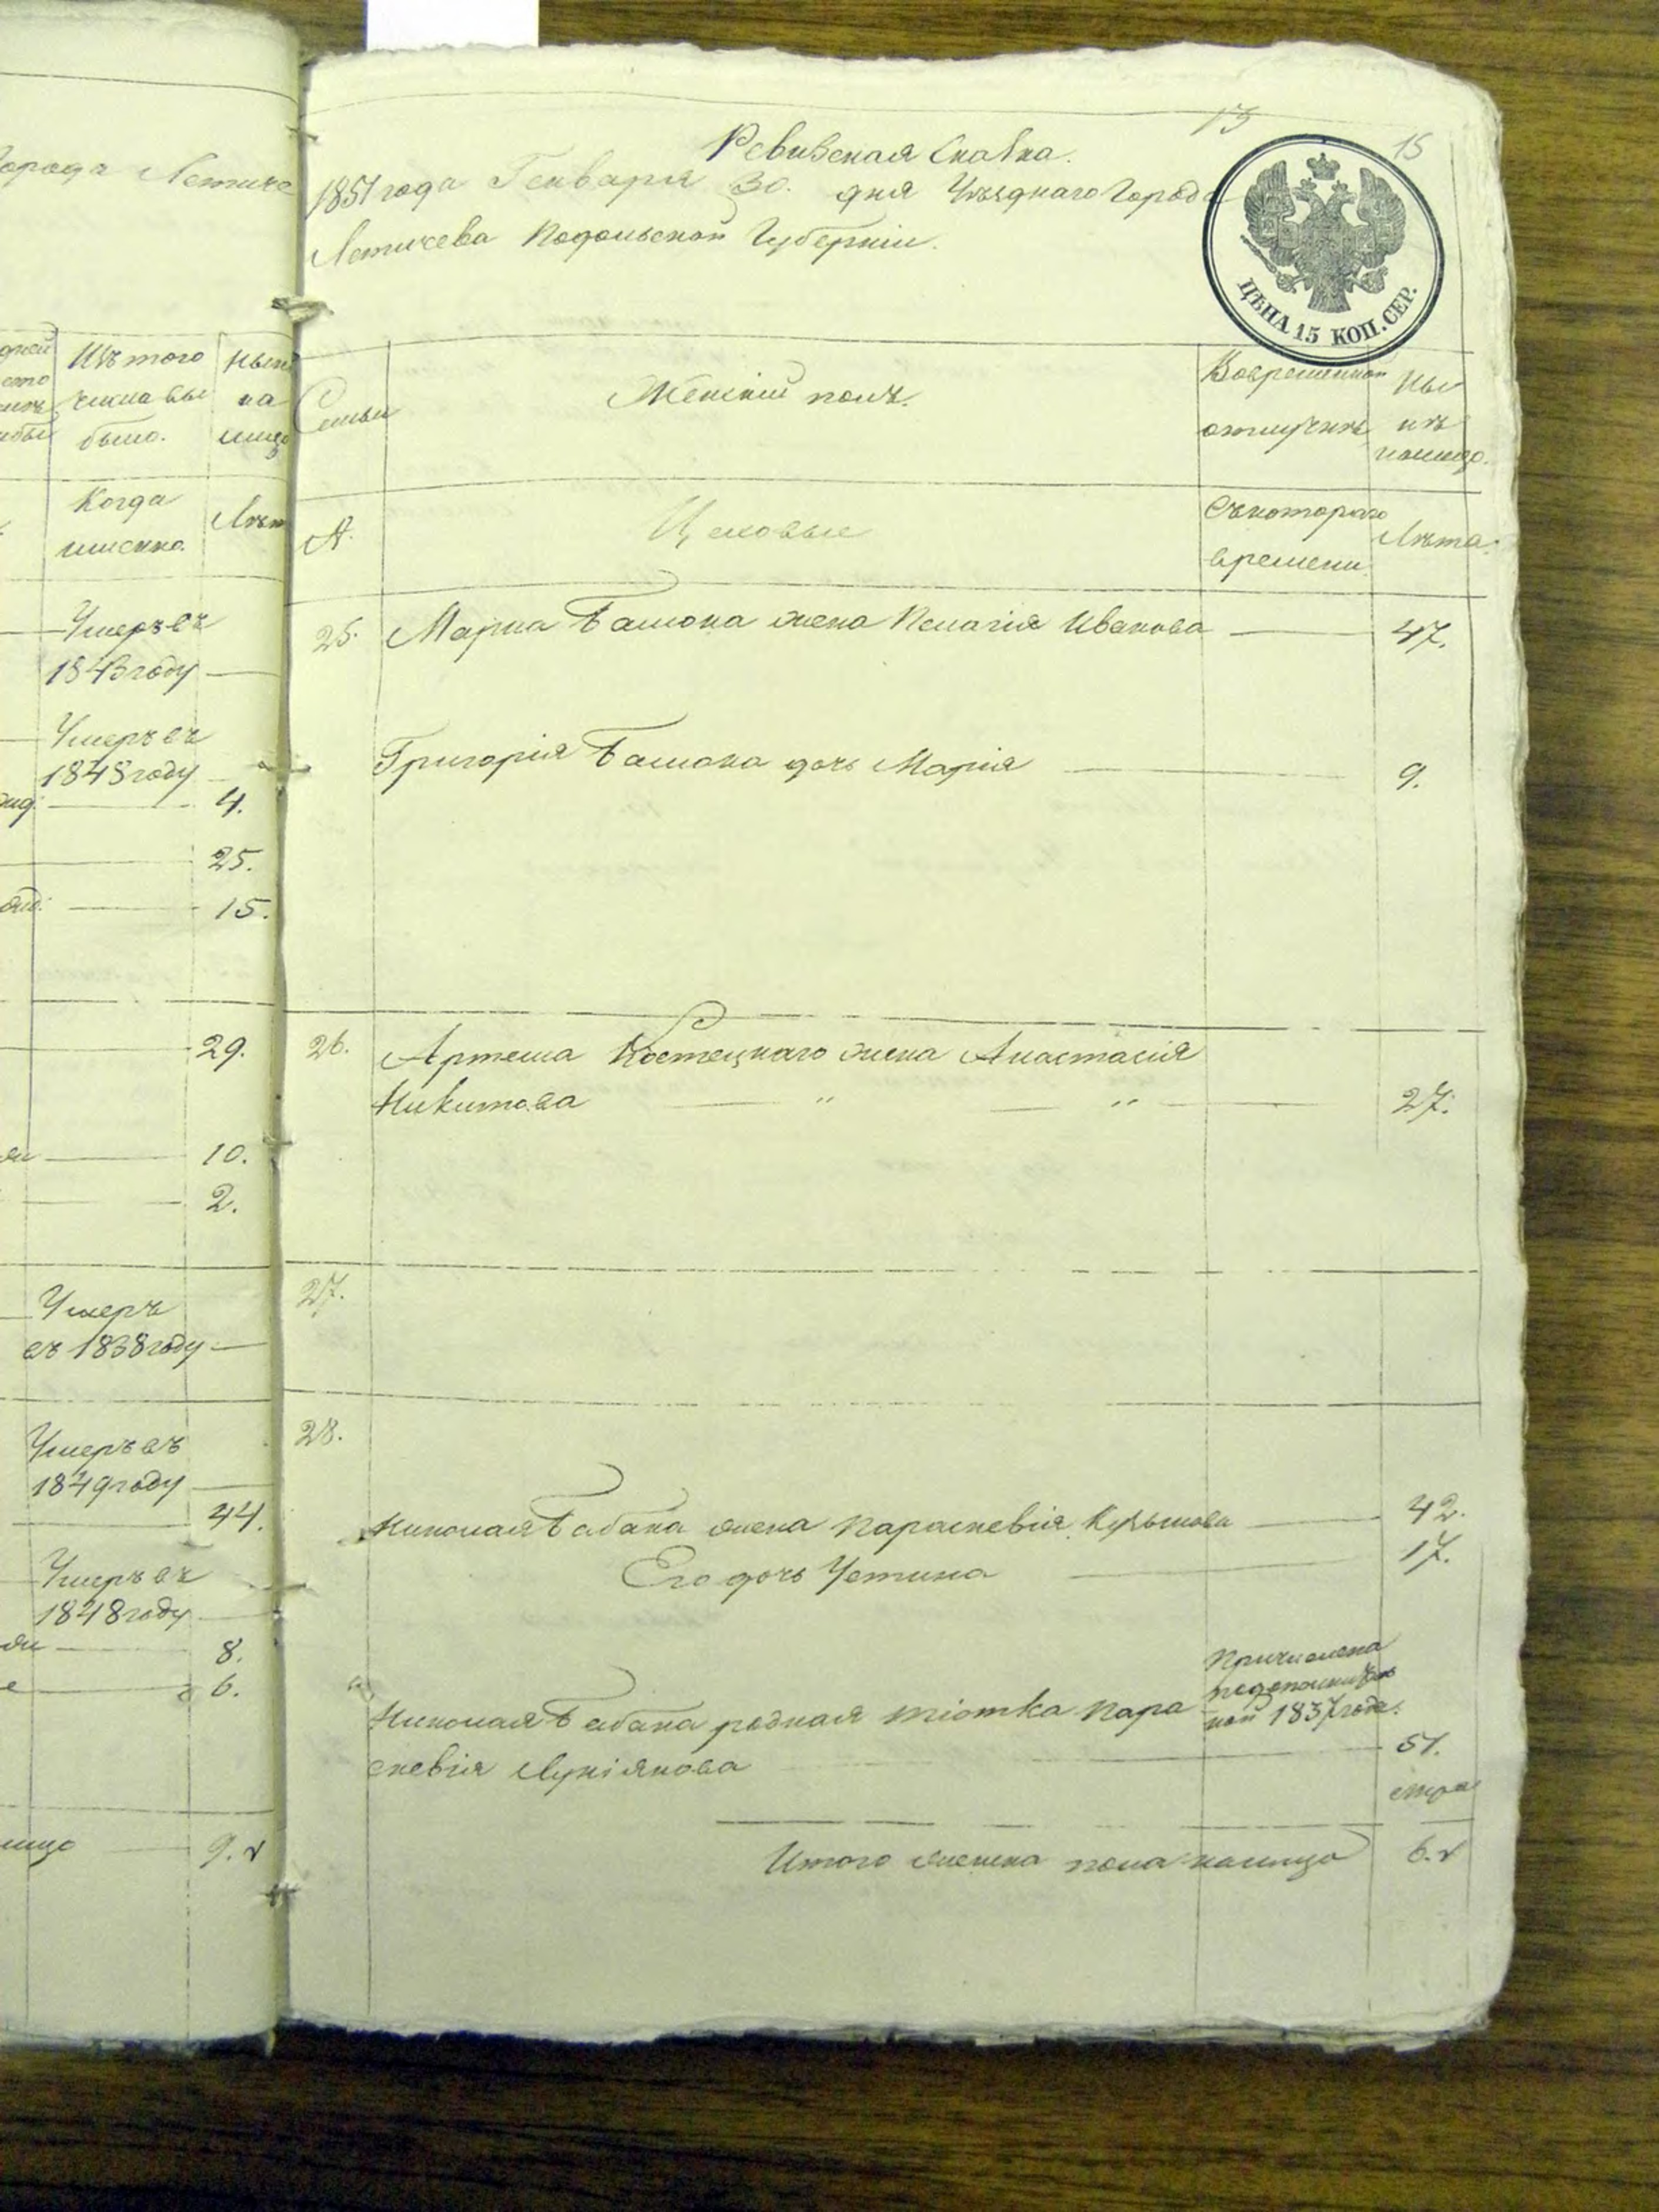 города Летиче
Изъ того
числа вы
было.
Когда
именно.
Умеръ въ
1843 году
Умеръ въ
1848 году
4.
25.
15.
29.
10.
2.
Умеръ
въ 1838 году
Умеръ въ
1849 году
44.
Умеръ въ
1848 году
8.
6.
9.
15
Ревизская Сказка.
1851 года Генваря 30. дня Уѣзднаго Города
Летичева Подольской Губерніи.
ЦѢНА 15 КОП. СЕР.
Семьи
Женскій полъ.
Во временной
отлучкѣ
Ны
нѣ
налицо.
№
Цеховые
Съ котораго
времени
Лѣта.
25. Марка Бамока жена Пелагія Иванова 47.
Григорія Бамока дочь Марія 9.
26. Артема Костецкаго жена Анастасія
Никитова " " 27.
27.
28.
Николая Бабака жена Параскевія Кузьмова 42.
Его дочь Устина 17.
Причислена
1837 года.
Николая Бабака родная тіотка Пара
скевія Лукіянова 51.
Итого женска пола налицо 6.